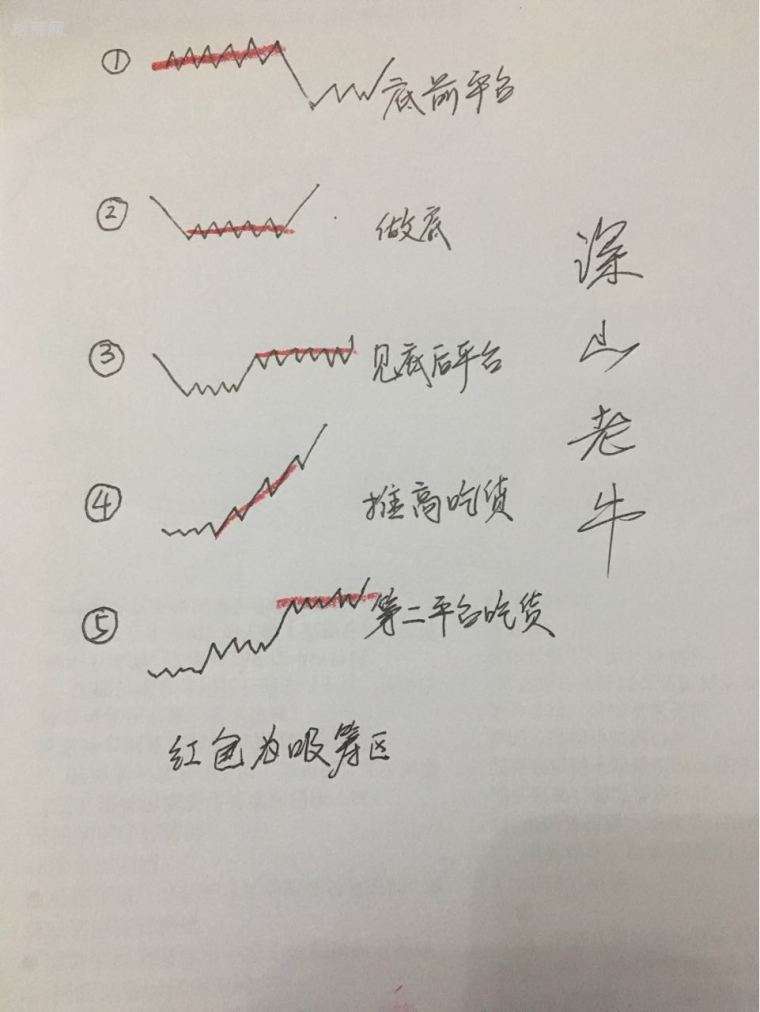 ① 底前平台
② 做底
③ 见底后平台
④ 推高吃货
⑤ 第二平台吃货
红色为吸筹区
深山老牛